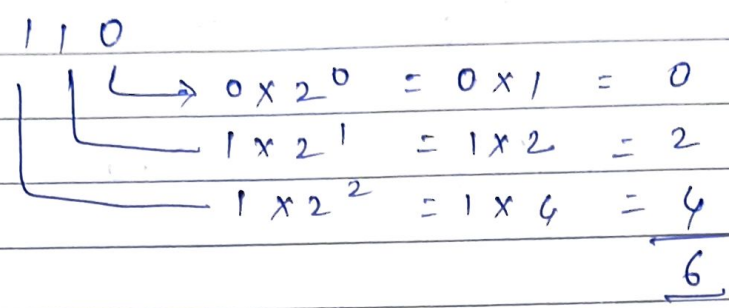 1 1 0
0 × 2⁰ = 0 × 1 = 0
1 × 2¹ = 1 × 2 = 2
1 × 2² = 1 × 4 = 4
6